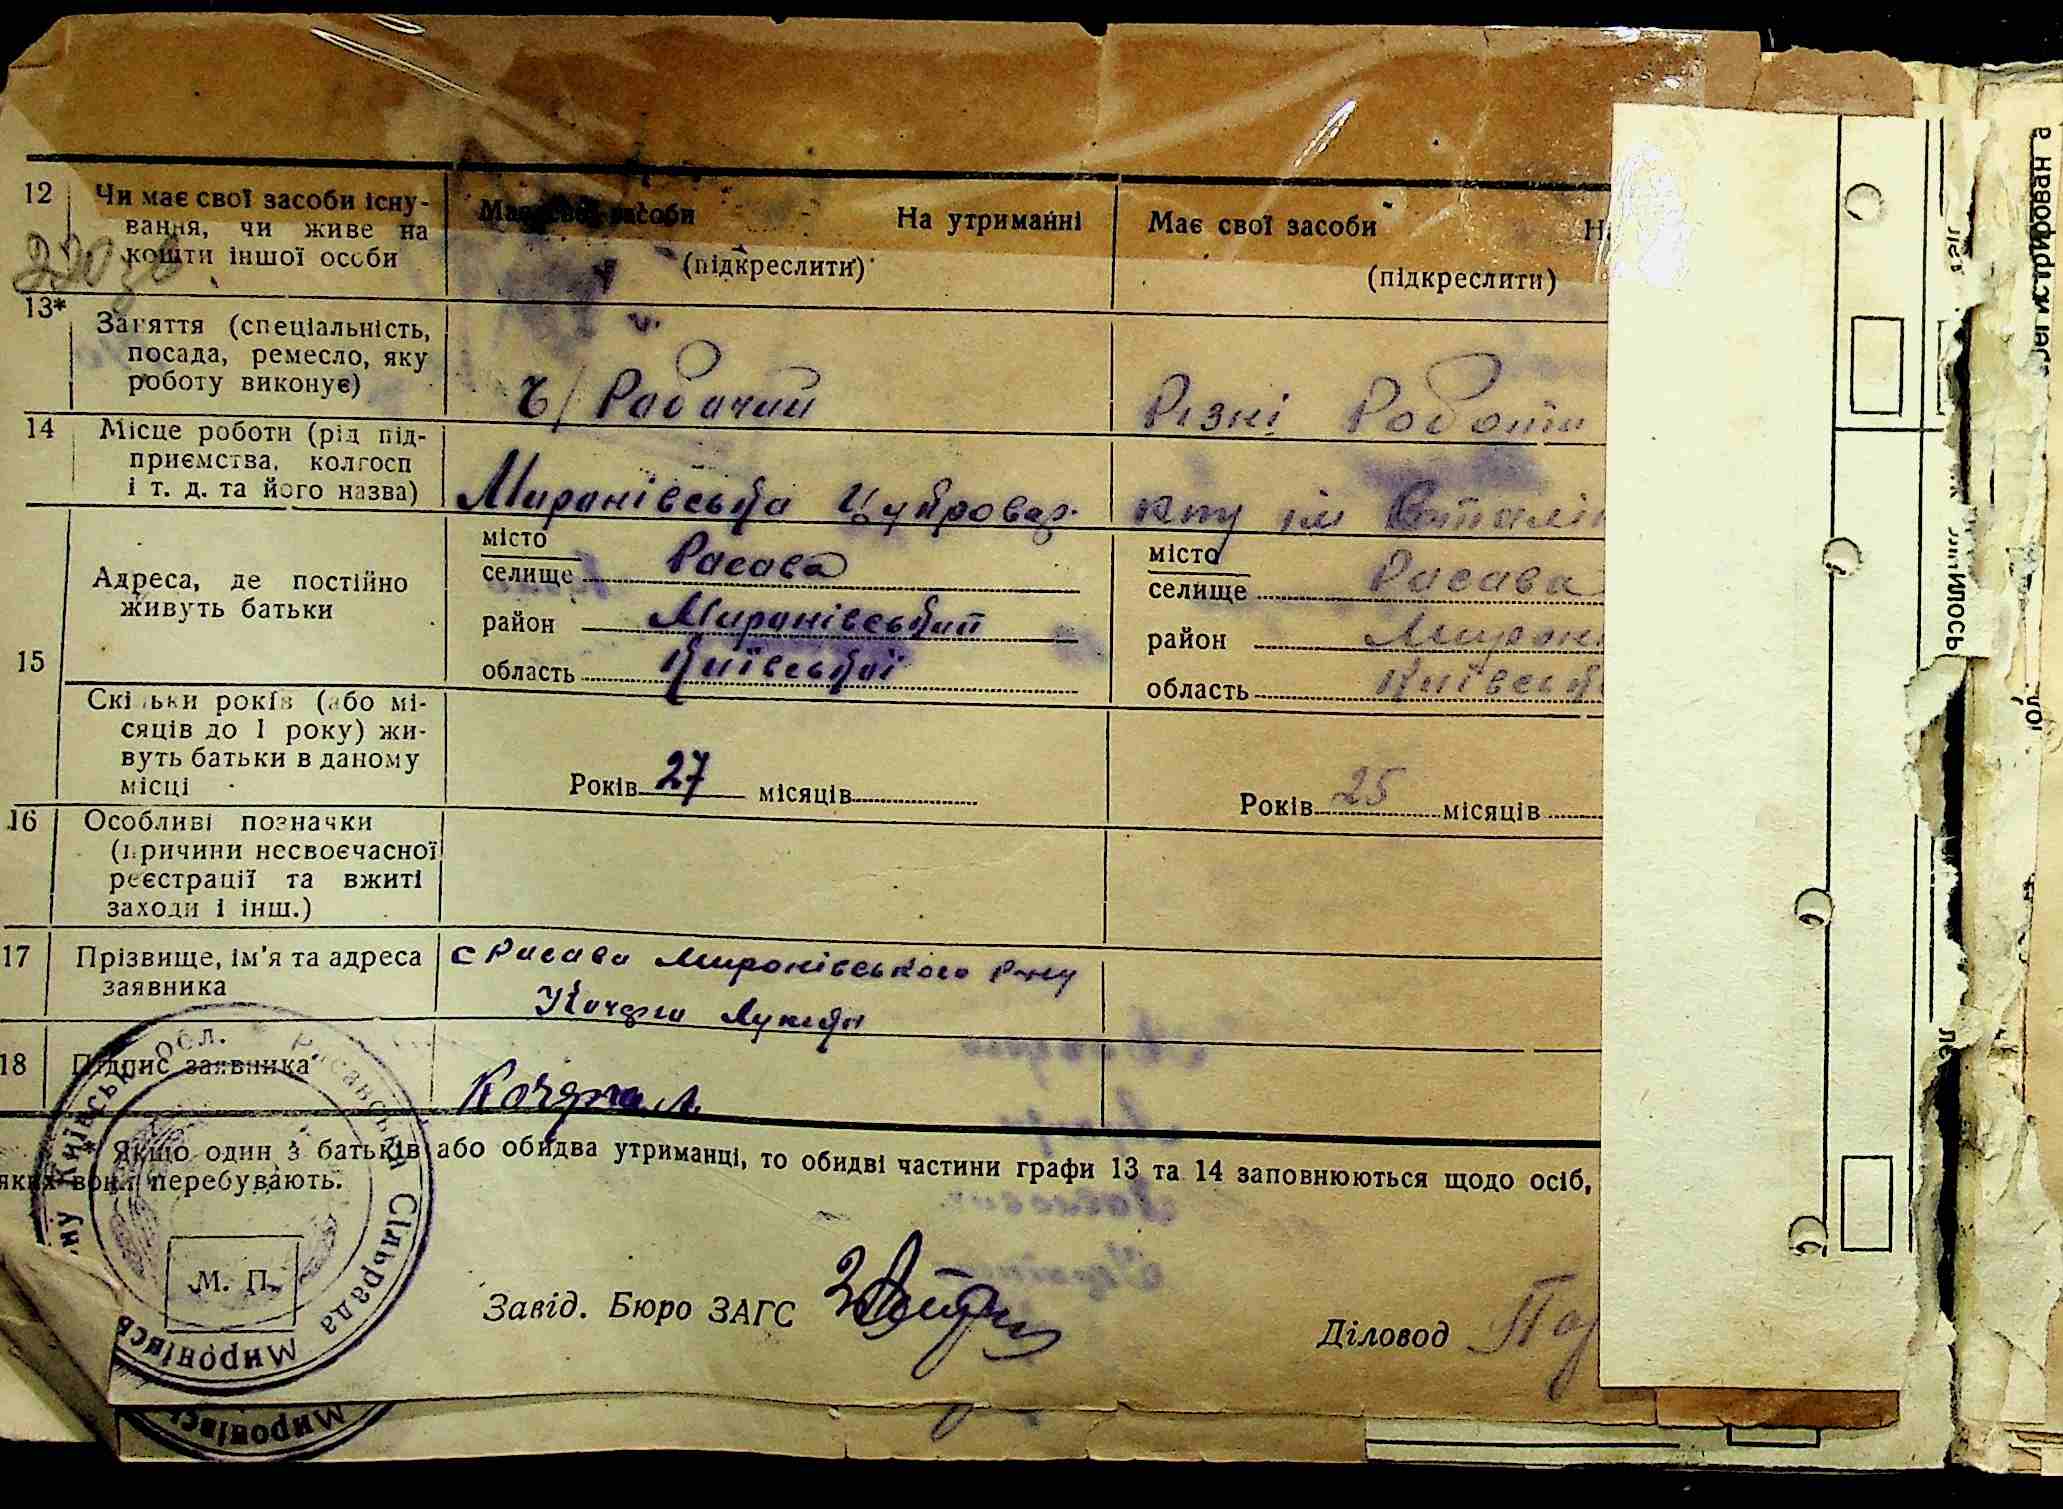 12 Чи має свої засоби існу-
вання, чи живе на
кошти іншої особи
Має свої засоби На утриманні
(підкреслити)
Має свої засоби
(підкреслити)
13*
Заняття (спеціальність,
посада, ремесло, яку
роботу виконує)
Рабочий
Різні Роботи
14 Місце роботи (рід під-
приємства, колгосп
і т. д. та його назва)
Миронівська
ім
15
Адреса, де постійно
живуть батьки
місто
селище Расава
район Миронівський
область Київської
місто
селище Расава
район
область
Скільки років (або мі-
сяців до 1 року) жи-
вуть батьки в даному
місці
Років 27 місяців
Років 25 місяців
16 Особливі позначки
(причини несвоєчасної
реєстрації та вжиті
заходи і інш.)
17 Прізвище, ім'я та адреса
заявника
с Расава Миронівського р-ну
18 Підпис заявника
Якщо один з батьків або обидва утриманці, то обидві частини графи 13 та 14 заповнюються щодо осіб,
яких вони перебувають.
М. П.
Завід. Бюро ЗАГС
Діловод